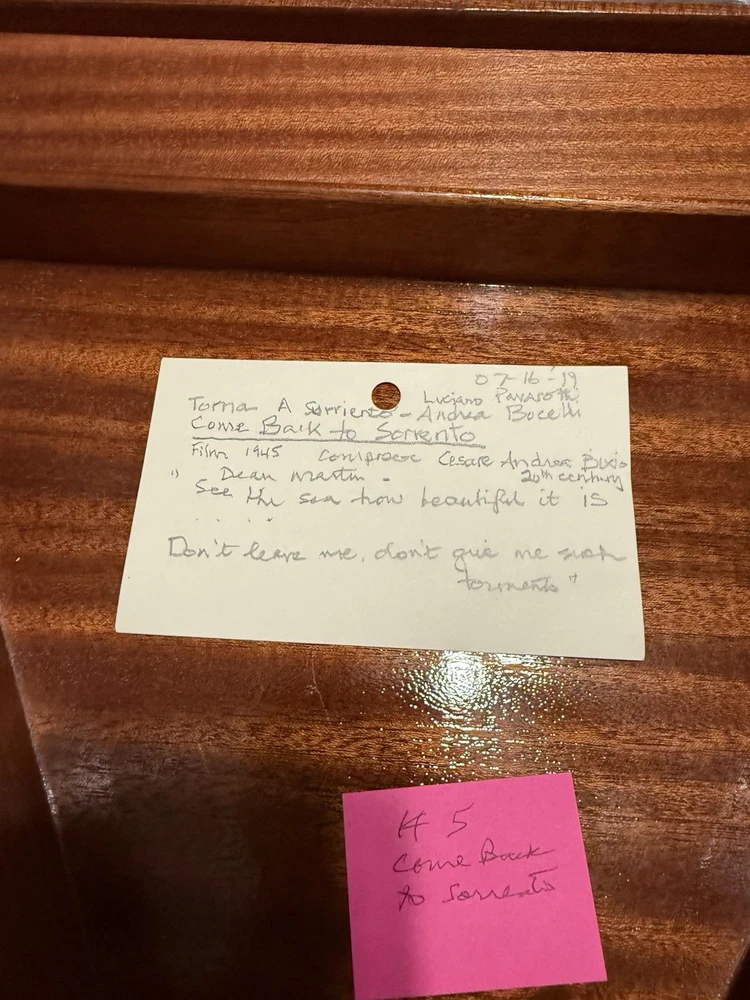 07-16-'19
Luciano Pavarotti
Torna A Sorriento - Andrea Bocelli
Come Back to Sorrento
Film 1945 Composer Cesare Andrea Bixio
20th century
" Dean Martin -
See the sea how beautiful it is
. . . . .
Don't leave me, don't give me such
torments"
# 5
Come Back
to Sorrento